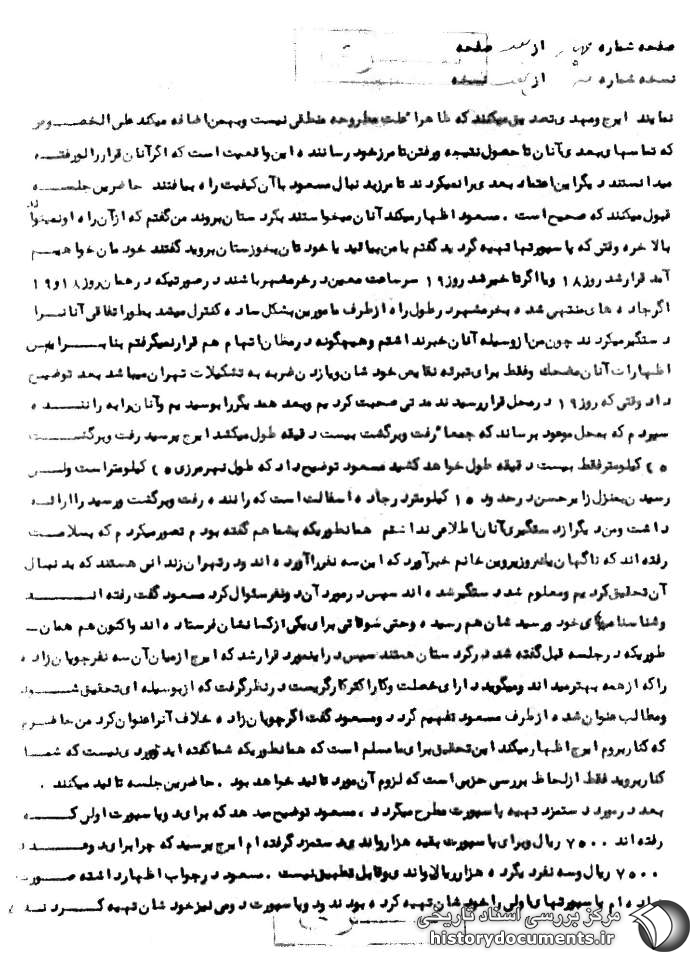 صفحه شماره از صفحه
نسخه شماره از نسخه
نمایند ایرج ومهدی تصدیق میکنند که ظاهرا" علت مطروحه منطقی نیست وبهمن اضافه میکند علی الخصوص
که تماسهای بعدی آنان تا حصول نتیجه ورفتن تا مرز خود رساننده این واقعیت است که اگر آنان قرار را لورفته
میدانستند دیگر این اعتماد بعدی برا نمیکردند تا مرز بدنبال مسعود با آن کیفیت راه بیافتند حاضرین جلسه
قبول میکنند که صحیح است . مسعود اظهار میکند آنان میخواستند بکردستان بروند من گفتم که از آن راه او نمیخواند
بالاخره وقتی که پاسپورتها تهیه گردید گفتم با من بیائید یا خودتان بخوزستان بروید گفتند خودمان خواهیم
آمد قرار شد روز ۱۸ ویا اگر تاخیر شد روز ۱۹ سرساعت معین در خرمشهر باشند در صورتیکه در همان روز ۱۸ و ۱۹
اگر جاده های منتهی شده بخرمشهر در طول راه از طرف مامورین بشکل ساده کنترل میشد بطور اتفاقی آنانرا
دستگیر میکردند چون من از وسیله آنان خبر نداشتم وهیچگونه در مظان اتهام هم قرار نمیگرفتم بنابراین
اظهارات آنان مضحک وفقط برای تبرئه نقایص خودشان ویا زدن ضربه به تشکیلات تهران میباشد بعد توضیح
داد وقتی که روز ۱۹ در محل قرار رسیدند مدتی صحبت کردیم وبعد همدیگر را بوسیدیم وآنان را به راننده
سپردم که بمحل موعود برساند که جمعا" رفت وبرگشت بیست دقیقه طول میکشد ایرج پرسید رفت وبرگشت
۲۵ کیلومتر فقط بیست دقیقه طول خواهد کشید مسعود توضیح داد که طول نهر مرزی ۲۵ کیلومتر است ولی
رسیدن بمنزل زایر حسن در حدود ۱۵ کیلومتر در جاده اسفالت است که راننده رفت وبرگشت ورسید را ارائه
داشت ومن دیگر از دستگیری آنان اطلاعی نداشتم همانطوریکه بشما هم گفته بودم تصور میکردم که بسلامت
رفته اند که ناگهان یکروز پروین خانم خبر آورد که این سه نفر را آورده اند ودر تهران زندانی هستند که بدنبال
آن تحقیق کردیم ومعلوم شد دستگیر شده اند سپس در مورد آن دو نفر سئوال کرد مسعود گفت رفته اند
وشناسنامه های خود ورسیدشان هم رسیده وحتی سوقاتی برای یکی از کسانشان فرستاده اند واکنون هم همان
طوریکه در جلسه قبل گفته شد در کردستان هستند سپس در اینمورد قرار شد که ایرج از میان آن سه نفر جویان زاده
را که از همه بهتر میداند ومیگوید دارای خصلت وکاراکتر کارگریست در نظر گرفت که از بوسیله ای تحقیق شود
ومطالب عنوان شده از طرف مسعود تفهیم گردد ومسعود گفت اگر جویان زاده خلاف آنرا عنوان کرد من حاضرم
که کنار بروم ایرج اظهار میکند این تحقیق برای ما مسلم است که همانطوریکه شما گفته اید تردیدی نیست که شما
کنار بروید فقط از لحاظ بررسی حزبی است که لزوم آن مورد تائید خواهد بود . حاضرین جلسه تائید میکنند .
بعد در مورد دستمزد تهیه پاسپورت مطرح میگردد ، مسعود توضیح میدهد که برای دو پاسپورت اولی که
رفته اند ۷۵۰۰ ریال وبرای پاسپورت بقیه هزار واندی دستمزد گرفته ام ایرج پرسید که چرا برای دو عدد
۷۵۰۰ ریال وسه نفر دیگر ده هزار ریال واندی وقابل تطبیق نیست . مسعود در جواب اظهار داشته صورت
داده ام پاسپورتهای اولی را خودشان تهیه کرده بودند ودو پاسپورت دومی نیز خودشان تهیه کردند
مرکز بررسی اسناد تاریخی
historydocuments.ir